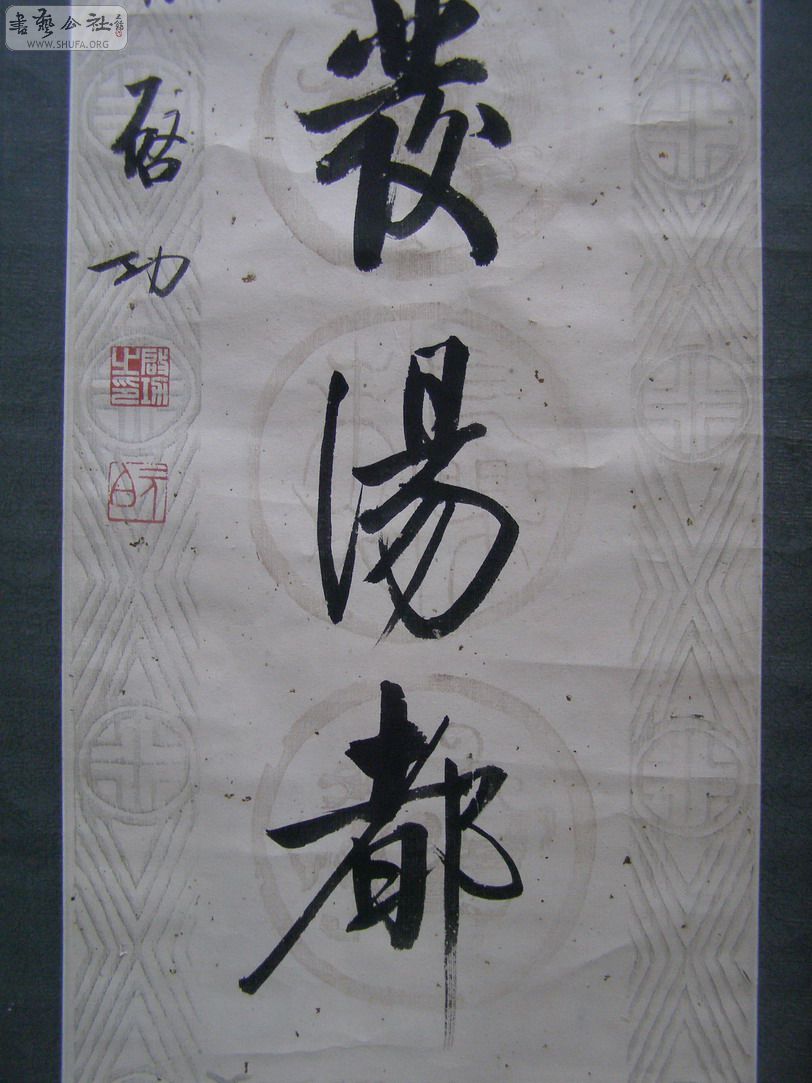 書藝公社
WWW.SHUFA.ORG
發湯都
啓功
啟功之印
元白